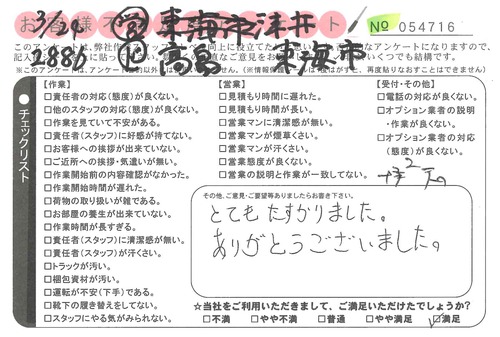 お客様不
3/24 東海市津井 № 054716
2886 高島 東海市
このアンケートは、弊社
アンケートになりますので、
いくつでも結構です。
チェックリスト
【作業】
□責任者の対応(態度)が良くない。
□他のスタッフの対応(態度)が良くない。
□作業を見ていて不安がある。
□責任者(スタッフ)に好感が持てない。
□お客様への挨拶が出来ていない。
□ご近所への挨拶・気遣いが無い。
□作業開始前の内容確認がなかった。
□作業開始時間が遅れた。
□荷物の取り扱いが雑である。
□お部屋の養生が出来ていない。
□作業時間が長すぎる。
□責任者(スタッフ)に清潔感が無い。
□責任者(スタッフ)が汗くさい。
□トラックが汚い。
□梱包資材が汚い。
□運転が不安(下手)である。
□靴下の履き替えをしてない。
□スタッフにやる気がみられない。
【営業】
□見積もり時間に遅れた。
□見積もり時間が長い。
□営業マンに清潔感が無い。
□営業マンが煙草くさい。
□営業マンが汗くさい。
□営業態度が良くない。
□営業の説明と作業が一致してない。
【受付・その他】
□電話の対応が良くない。
□オプション業者の説明
・作業が良くない。
□オプション業者の対応
(態度)が良くない。
その他、ご意見・ご要望等ありましたらお書き下さい。
とてもたすかりました。
ありがとうございました。
☆当社をご利用いただきまして、ご満足いただけたでしょうか?
□不満 □やや不満 □普通 □やや満足 □満足